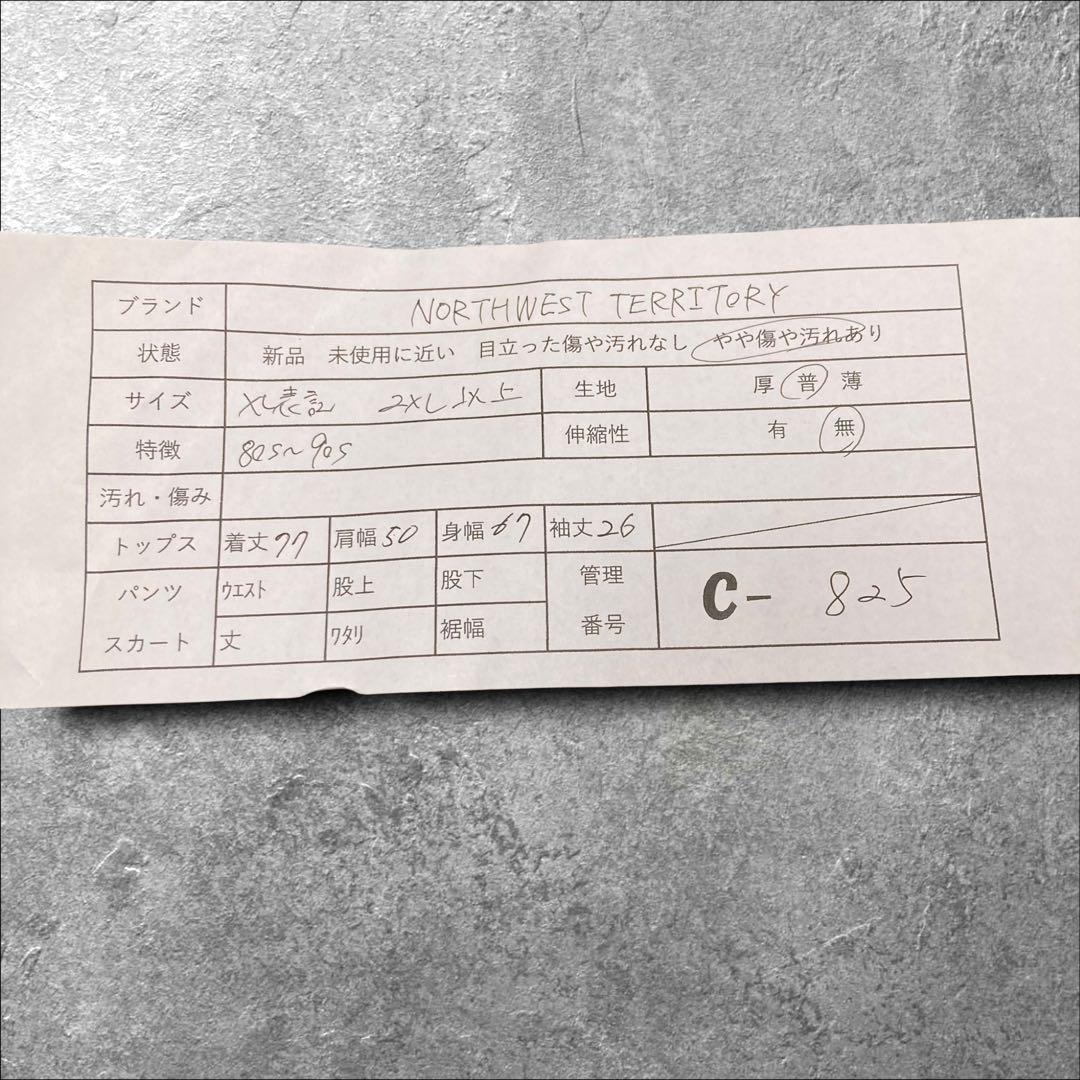 ブランド NORTHWEST TERRITORY
状態 新品 未使用に近い 目立った傷や汚れなし やや傷や汚れあり
サイズ XL表記 2XL以上 生地 厚 普 薄
特徴 80s~90s 伸縮性 有 無
汚れ・傷み
トップス 着丈77 肩幅50 身幅67 袖丈26
パンツ ウエスト 股上 股下 管理 C- 825
スカート 丈 ワタリ 裾幅 番号